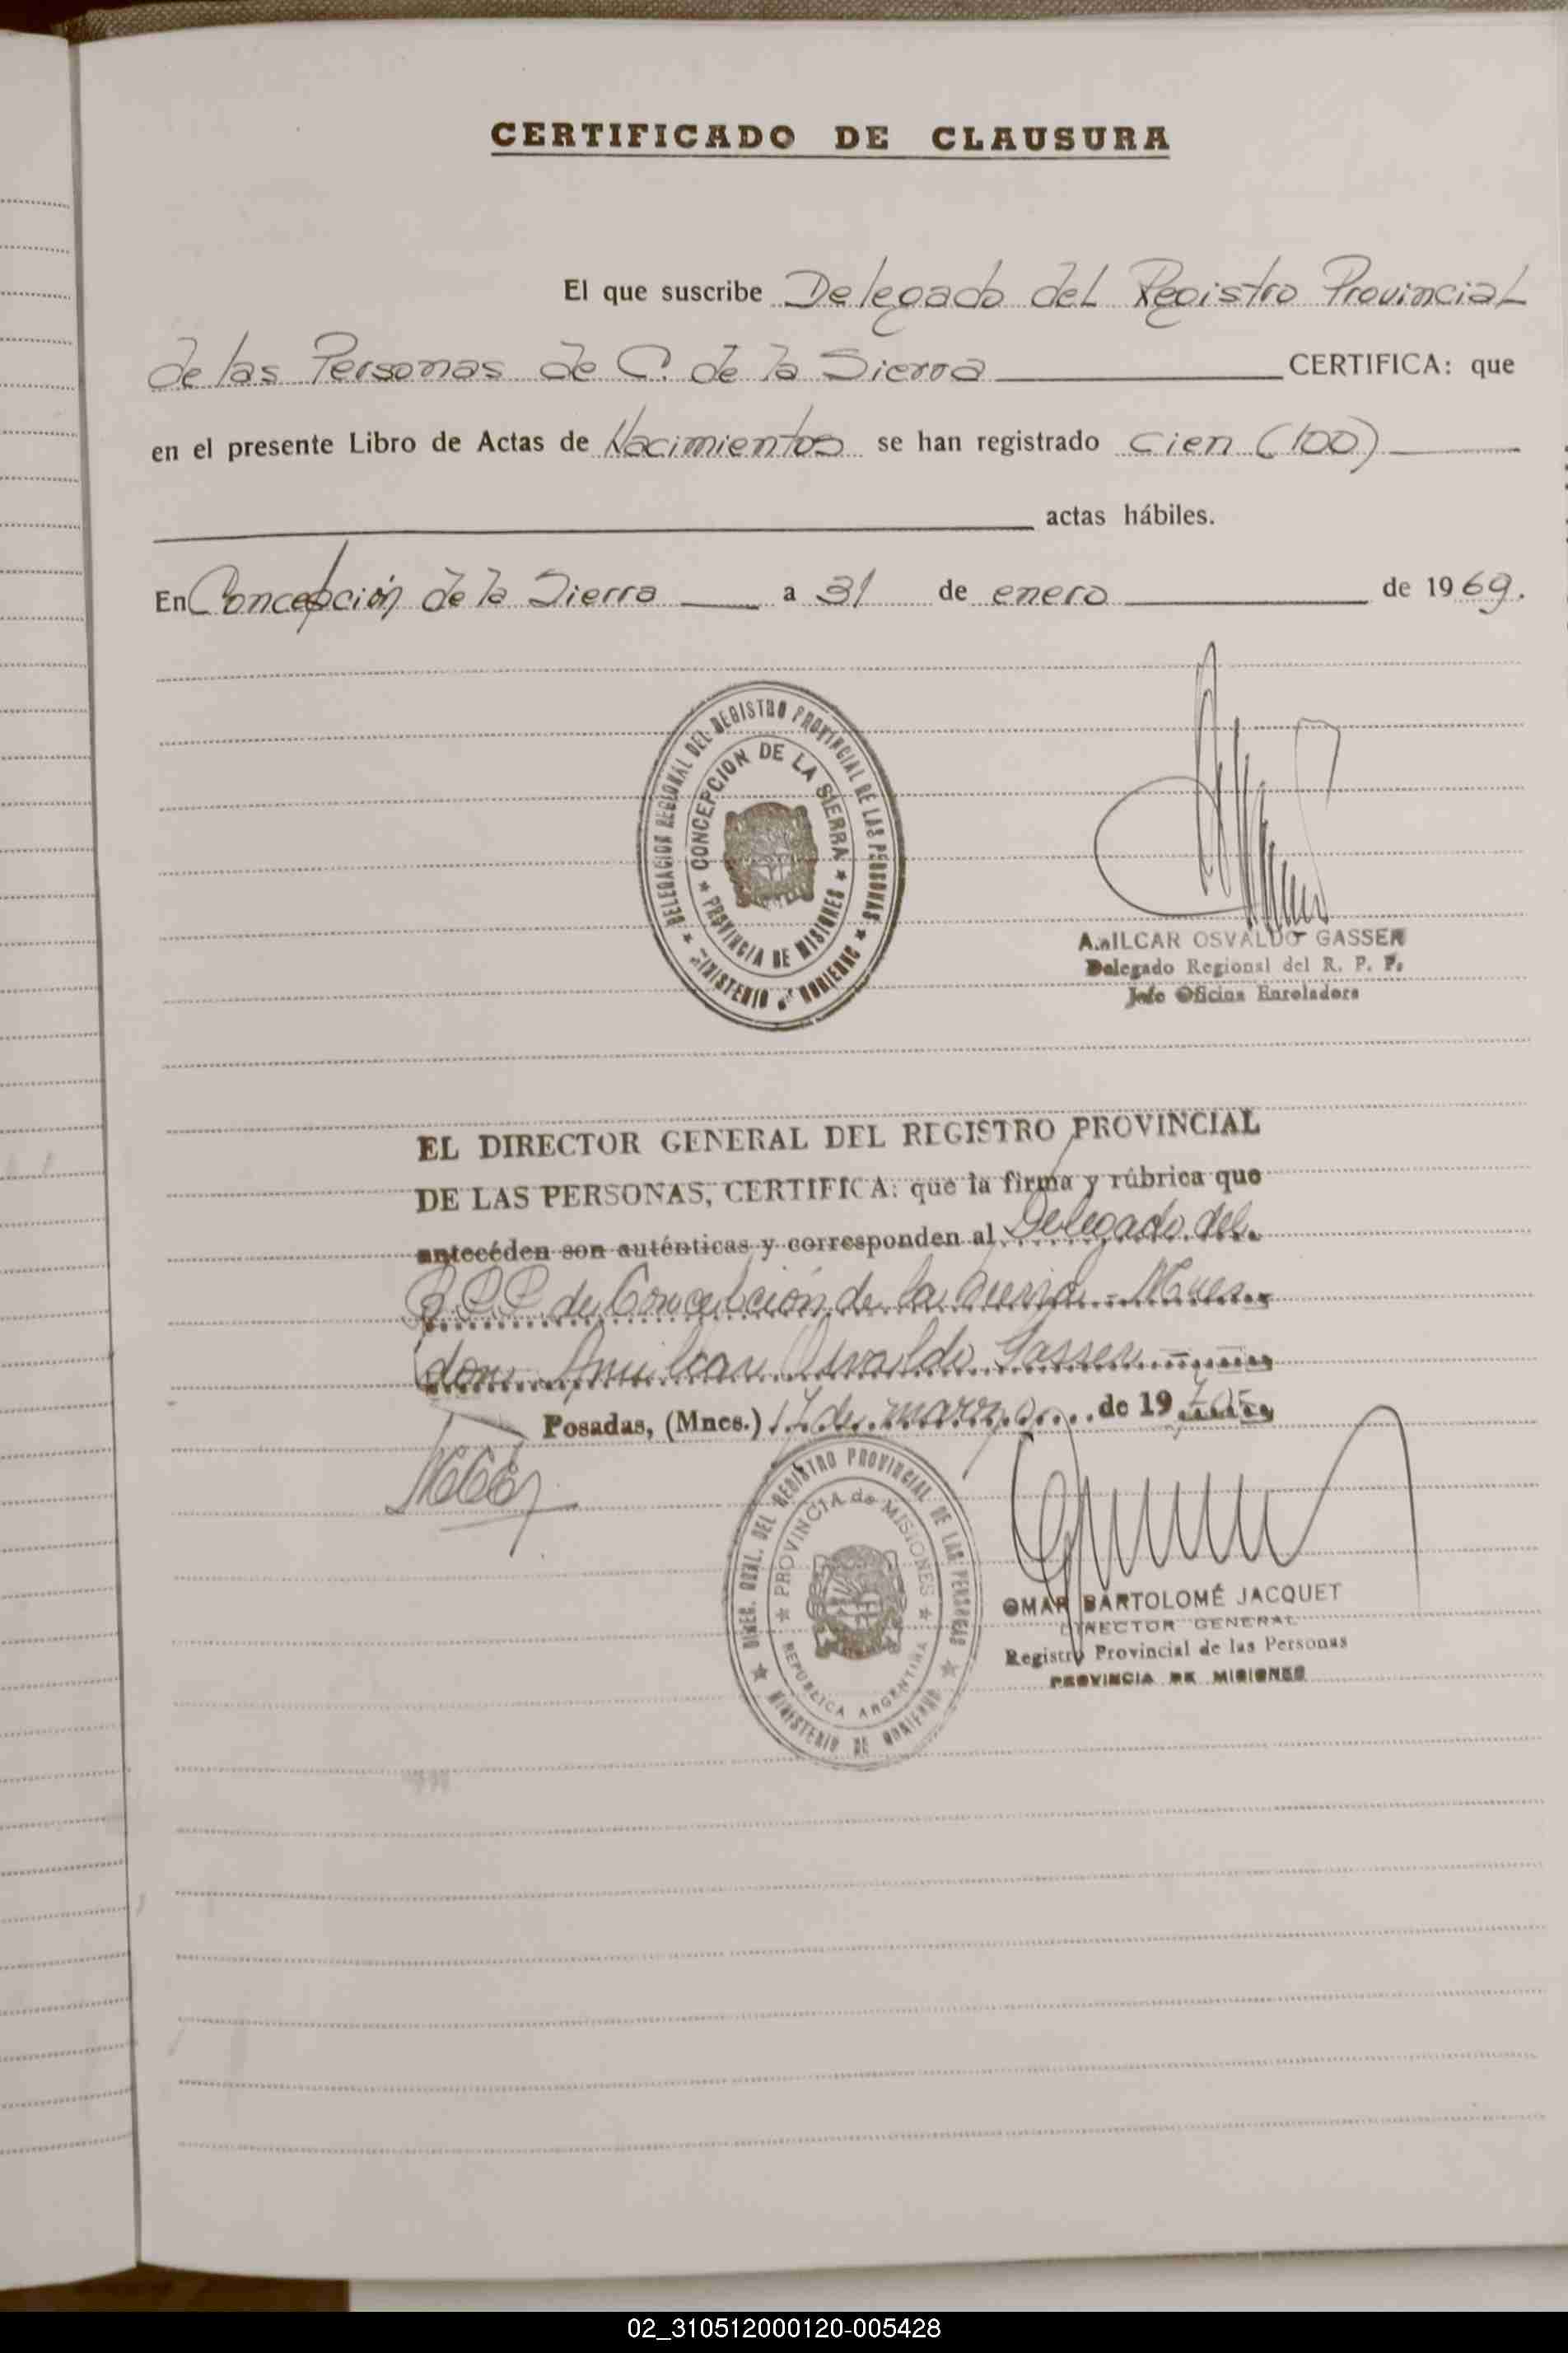 CERTIFICADO DE CLAUSURA
El que suscribe Delegado del Registro Provincial
de las Personas de C. de la Sierra CERTIFICA: que
en el presente Libro de Actas de Nacimientos se han registrado cien (100)
actas hábiles.
En Concepción de la Sierra a 31 de enero de 1969.
DELEGACION REGIONAL DEL REGISTRO PROVINCIAL DE LAS PERSONAS
CONCEPCION DE LA SIERRA
PROVINCIA DE MISIONES
MINISTERIO DE GOBIERNO
AMILCAR OSVALDO GASSER
Delegado Regional del R. P. P.
Jefe Oficina Enroladora
EL DIRECTOR GENERAL DEL REGISTRO PROVINCIAL
DE LAS PERSONAS, CERTIFICA: que la firma y rúbrica que
antecéden son auténticas y corresponden al Delegado del
R.P.P. de Concepción de la Sierra - Mnes.
don Amilcar Osvaldo Gasser
Posadas, (Mnes.) 17 de marzo de 19 70
DIREC. GRAL. DEL REGISTRO PROVINCIAL DE LAS PERSONAS
PROVINCIA de MISIONES
REPUBLICA ARGENTINA
MINISTERIO DE GOBIERNO
OMAR BARTOLOMÉ JACQUET
DIRECTOR GENERAL
Registro Provincial de las Personas
PROVINCIA DE MISIONES
02_310512000120-005428